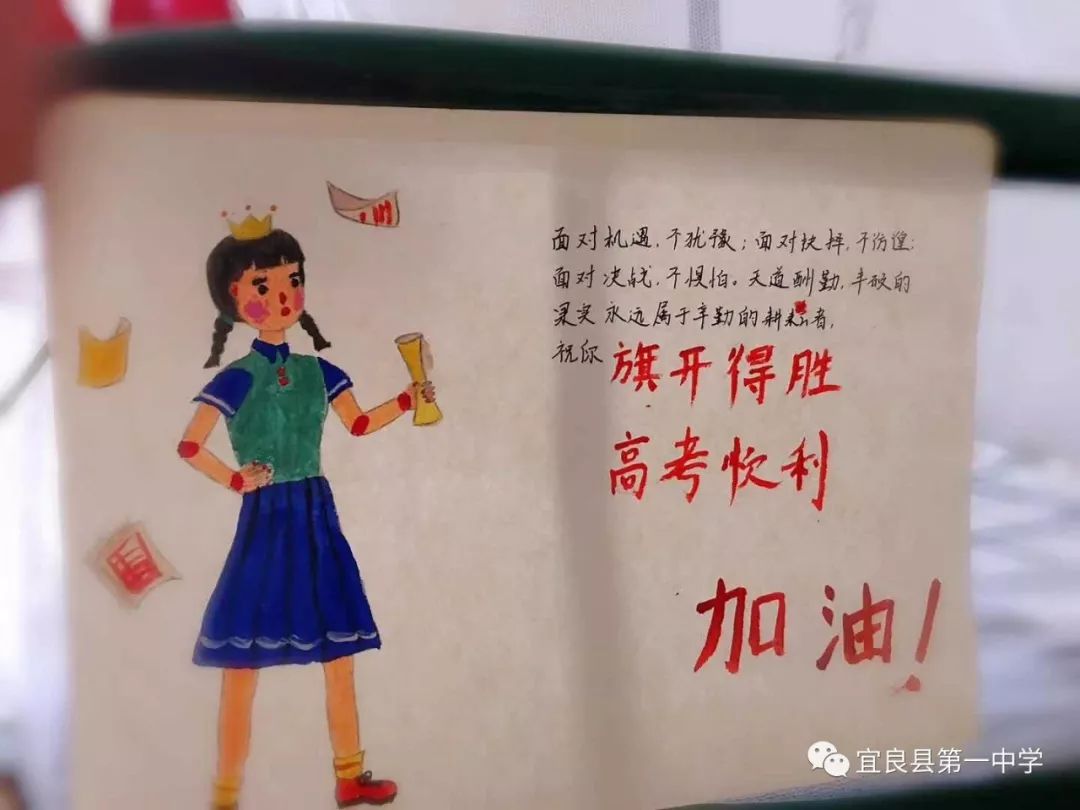 面对机遇,不犹豫;面对抉择,不彷徨;
面对决战,不惧怕。天道酬勤,丰硕的
果实永远属于辛勤的耕耘者,
祝你
旗开得胜
高考顺利
加油!
宜良县第一中学